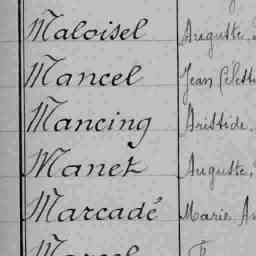 Maloisel Auguste
Mancel Jean
Mancing Aristide
Manet Auguste,
Marcadé Marie
Marcel